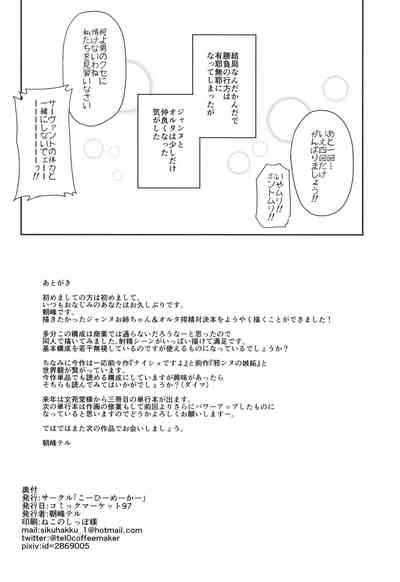 結局なんだかんだで
勝負の行方は
有耶無耶に
なってしまったが
ジャンヌと
オルタは少しだけ
仲良くなった
気がした
あと一回…
いえ四回だけ
がんばりましょう!!
いやムリ!!
ホントムリ!!
何よ男のクセに
情けないわね
私たちを見習いなさい
サーヴァントの体力と
一緒にしないでェーー
ーーーーーーーっ!!
あとがき
初めましての方は初めまして。
いつもおなじみのあなたはお久しぶりです。
朝峰です。
描きたかったジャンヌお姉ちゃん＆オルタ搾精対決本をようやく描くことができました!
多分この構成は商業では通らないだろうなーと思ったので
同人で描いてみました。射精シーンがいっぱい描けて満足です。
基本構成を若干無視しているのですが使えるものになっているのでしょうか?
ちなみに今作は一応前々作『ナイショですよ』と前作『邪ンヌの嫉妬』と
世界観が繋がっています。
今作単品でも読める構成にしていますが興味があったら
そちらも読んでみてはいかがでしょうか?(ダイマ)
来年は文苑堂様から三冊目の単行本が出ます。
次の単行本は作画の修業もして前回よりさらにパワーアップしたものに
なっていると思いますのでどうかよろしくお願いします!
ではではまた次の作品でお会いしましょう。
朝峰テル
奥付
発行:サークル「こーひーめーかー」
発行日:コミックマーケット97
発行者:朝峰テル
印刷:ねこのしっぽ様
mail:sikuhakku_1@hotmail.com
twitter:@tel0coffeemaker
pixiv:id=2869005